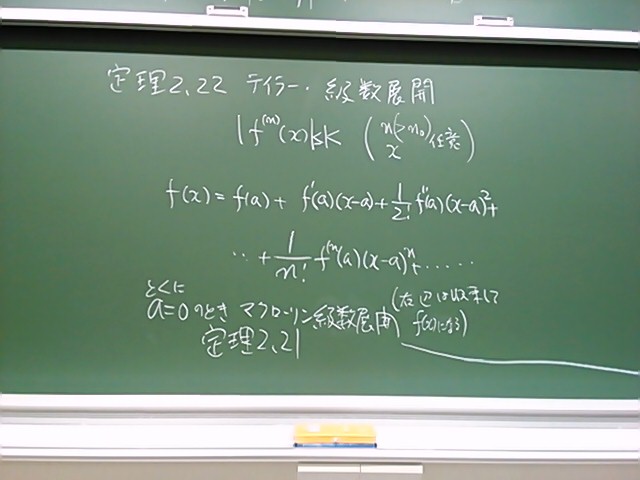 定理2.22 テイラー・級数展開
|f⁽ⁿ⁾(x)|≤K (n(>n₀) x 任意)
f(x) = f(a) + f'(a)(x-a) + 1/2! f''(a)(x-a)² +
‥ + 1/n! f⁽ⁿ⁾(a)(x-a)ⁿ + ‥‥‥
とくに
a=0のとき マクローリン級数展開 (右辺は収束して
f(x)になる)
定理2.21